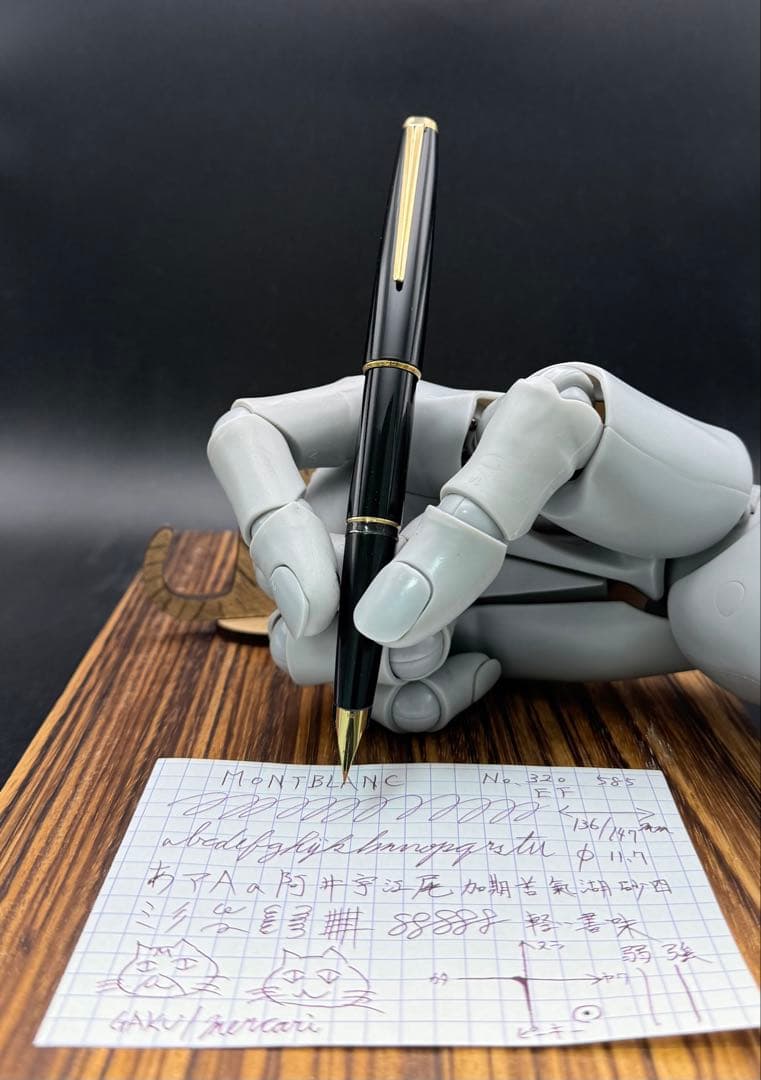 MONTBLANC No. 320 585
EF
136/147mm
abcdefghijklmnopqrstu φ 11.7
あアAa阿井宇江尾加期苦氣湖砂日
ミ 88888 軽い 書味
弱 強
カタ ヌラ ヤワ
GAKU/mercari